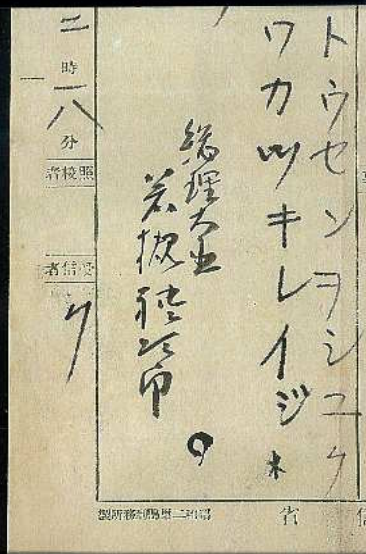 トウセンヲシユク
ワカツキレイジ
総理大臣
若槻礼次郎
二時一八分
照校者
受信者
省